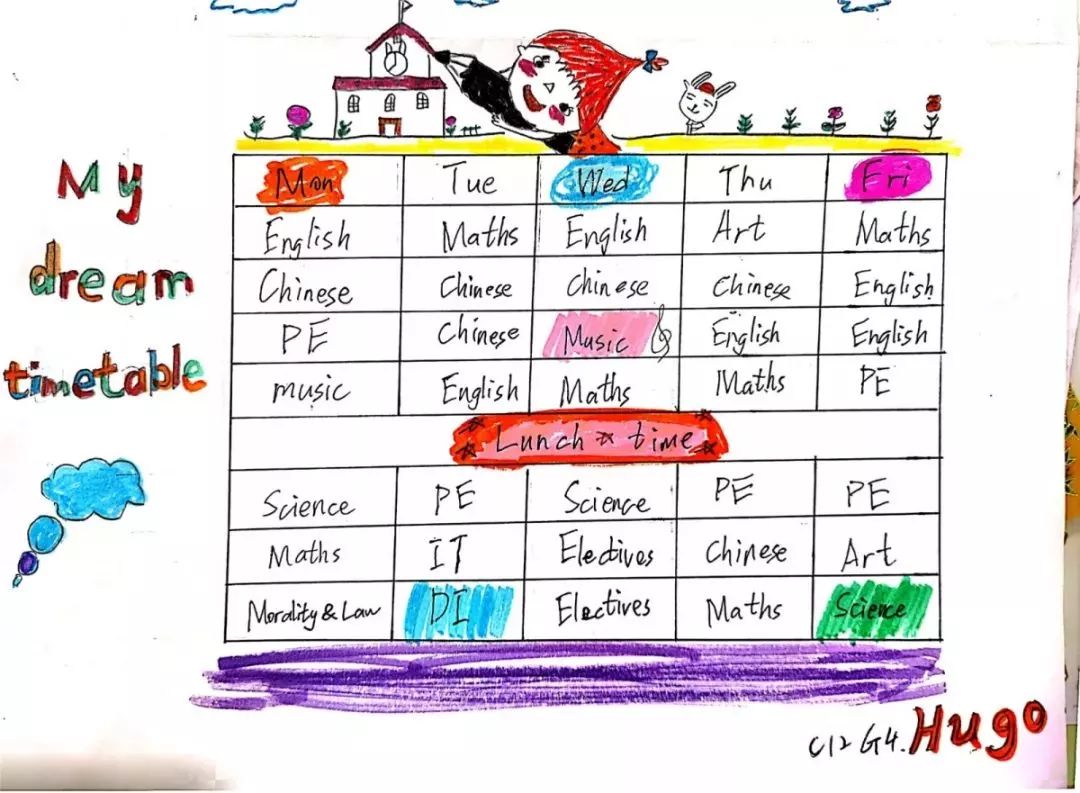 My
dream
timetable
Mon Tue Wed Thu Fri
English Maths English Art Maths
Chinese Chinese Chinese Chinese English
PE Chinese Music English English
music English Maths Maths PE
Lunch time
Science PE Science PE PE
Maths IT Electives Chinese Art
Morality & Law DI Electives Maths Science
C12 G4. Hugo